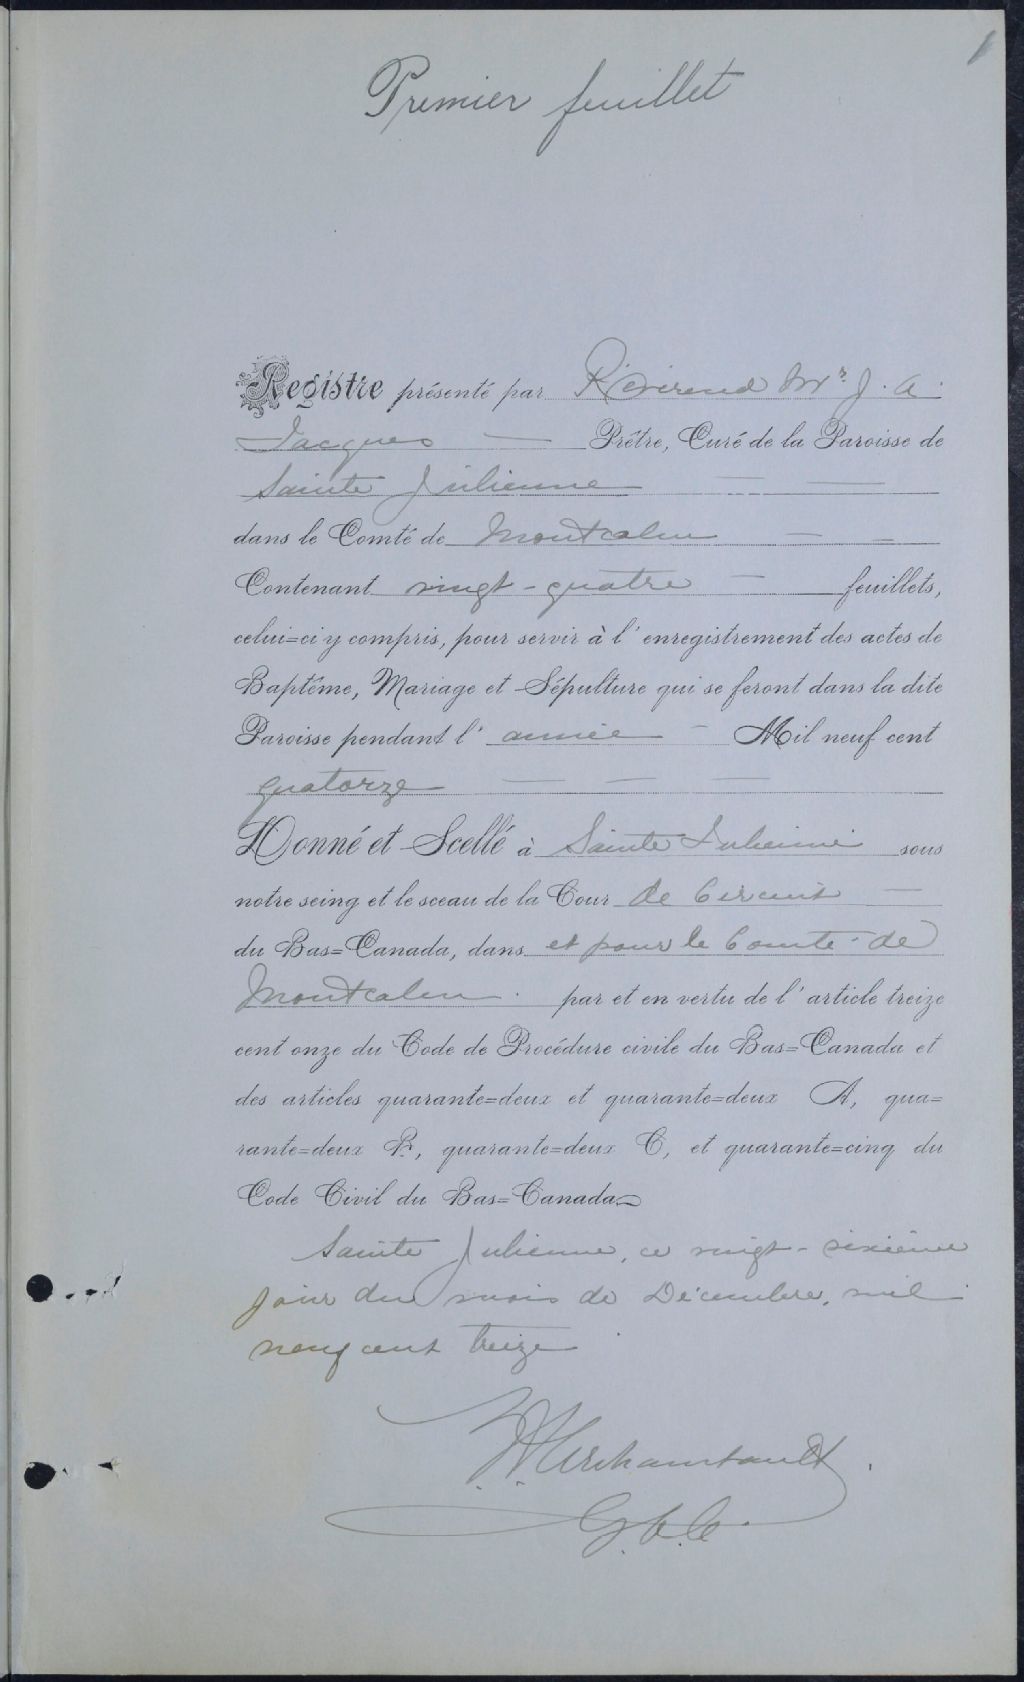 1
Premier feuillet
Registre présenté par Révérend Mr. J. A.
Jacques — Prêtre, Curé de la Paroisse de
Sainte Julienne — —
dans le Comté de Montcalm — —
Contenant vingt-quatre — feuillets,
celui=ci y compris, pour servir à l'enregistrement des actes de
Baptême, Mariage et Sépulture qui se feront dans la dite
Paroisse pendant l'année — Mil neuf cent
quatorze — — —
Donné et Scellé à Sainte Julienne sous
notre seing et le sceau de la Cour de Circuit —
du Bas=Canada, dans et pour le Comté de
Montcalm. par et en vertu de l'article treize
cent onze du Code de Procédure civile du Bas=Canada et
des articles quarante=deux et quarante=deux A, qua=
rante=deux B, quarante=deux C, et quarante=cinq du
Code Civil du Bas=Canada
Sainte Julienne, ce vingt-sixième
jour du mois de Décembre, mil
neuf cent treize
Archambault
G. C. C.